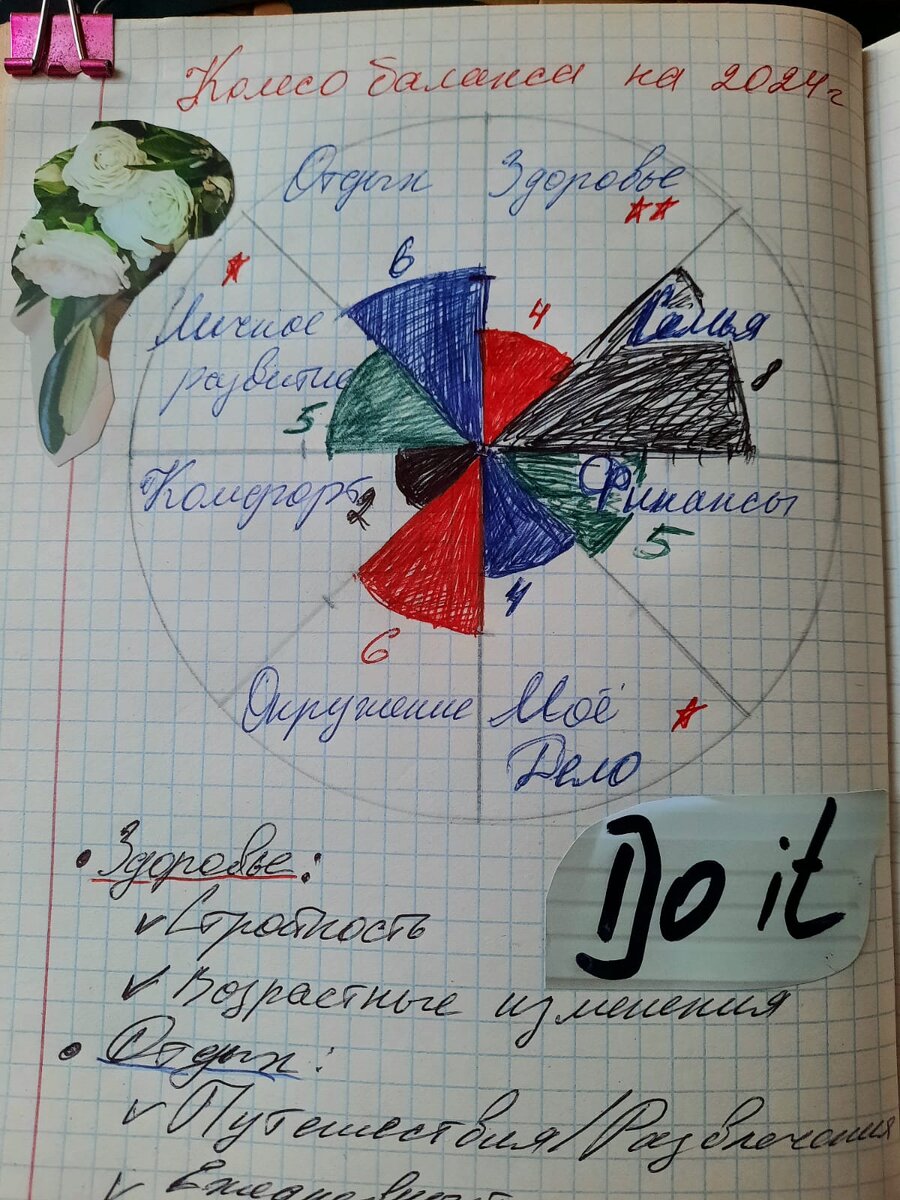 Колесо баланса на 2024г
Отдых Здоровье
6
4
Личное
развитие
Семья
8
5
Комфорт
2
Финансы
5
4
6
Окружение Моё
Дело
Do it
• Здоровье:
✓ Стройность
✓ Возрастные изменения
• Отдых:
✓ Путешествия/Развлечения
✓